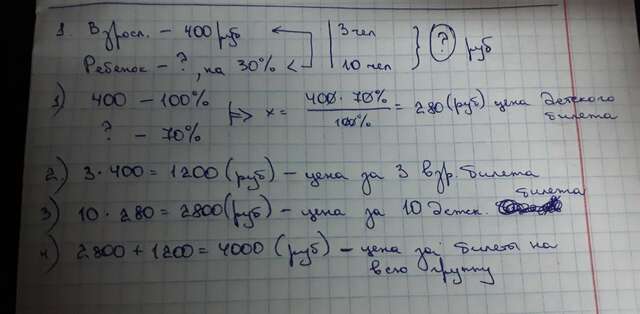 1. Взросл. – 400 руб | 3 чел } ? руб
Ребенок – ?, на 30% < | 10 чел
1) 400 – 100%
? – 70%
=> x = 400 · 70% / 100% = 280 (руб) цена детского
билета
2) 3 · 400 = 1200 (руб) – цена за 3 взр. билета
3) 10 · 280 = 2800 (руб) – цена за 10 детск. билета
4) 2800 + 1200 = 4000 (руб) – цена за билеты на
всю группу